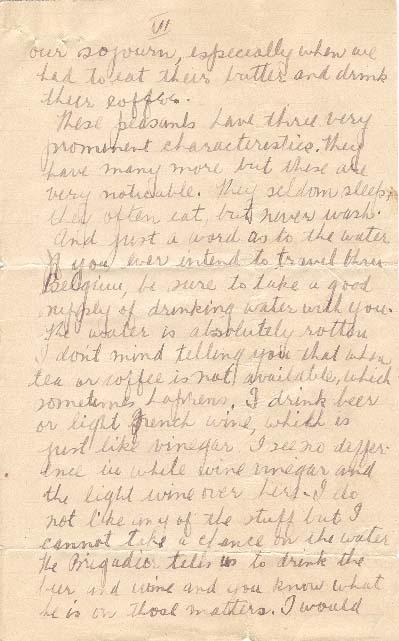 VII
our sojourn, especially when we
had to eat their butter and drink
their coffee.
These peasants have three very
prominent characteristics. They
have many more but these are
very noticable. They seldom sleep,
they often eat, but never wash.
And just a word as to the water
If you ever intend to travel thru
Belgium, be sure to take a good
supply of drinking water with you.
The water is absolutely rotton
I don't mind telling you that when
tea or coffee is not available, which
sometimes happens, I drink beer
or light French wine, which is
just like vinegar. I see no differ-
ence in white wine vinegar and
the light wine over here. I do
not like any of the stuff but I
cannot take a chance on the water
The Brigadier tells us to drink the
beer and wine and you know what
he is on those matters. I would